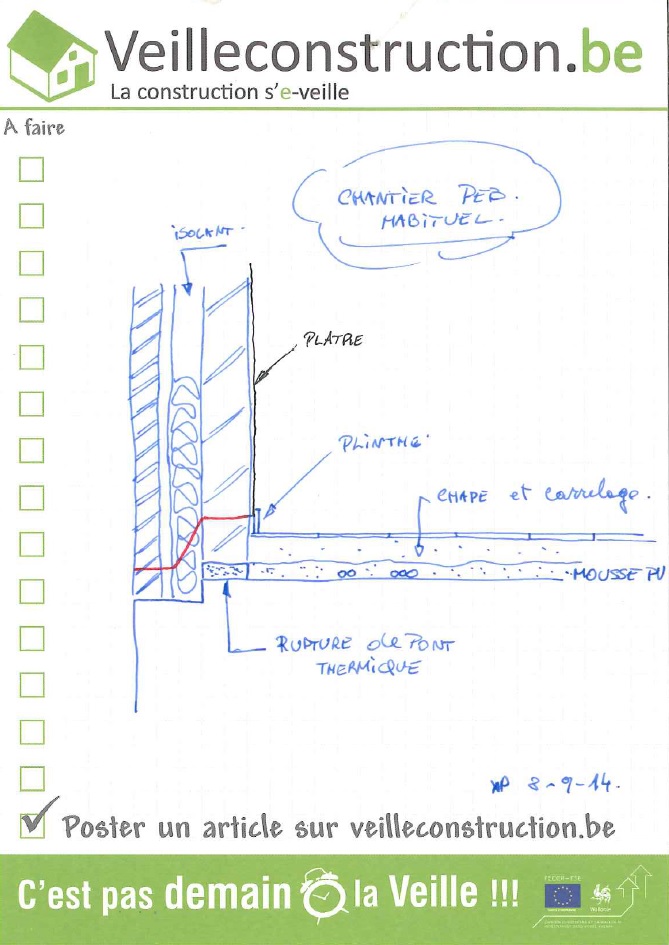 Veilleconstruction.be
La construction s'e-veille
A faire
CHANTIER PEB.
HABITUEL.
ISOLANT.
PLATRE
PLINTHE.
CHAPE et carrelage.
MOUSSE PU
RUPTURE de PONT
THERMIQUE
8-9-14.
Poster un article sur veilleconstruction.be
C'est pas demain la Veille !!!